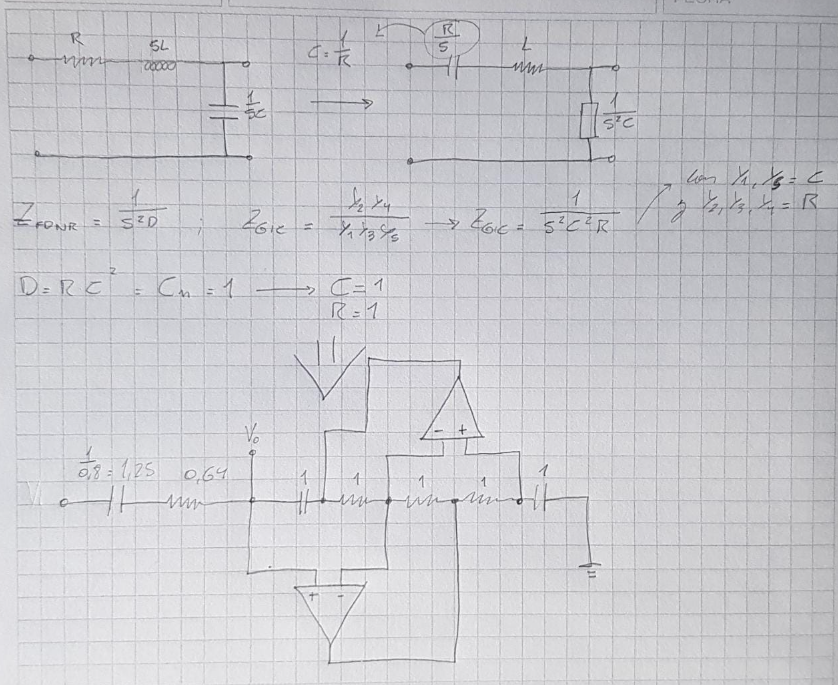 R SL 1/SC
C = 1/R
L R/S L 1/S²C
Z_FDNR = 1/S²D ; Z_GIC = Y₂ Y₄ / Y₁ Y₃ Y₅ → Z_GIC = 1/S²C²R
con Y₁, Y₅ = C
y Y₂, Y₃, Y₄ = R
D = R C² = Cₙ = 1 → C = 1
R = 1
V₀
1/0,8 = 1,25 0,64 1 1 1 1 1
Vi
- +
+ -